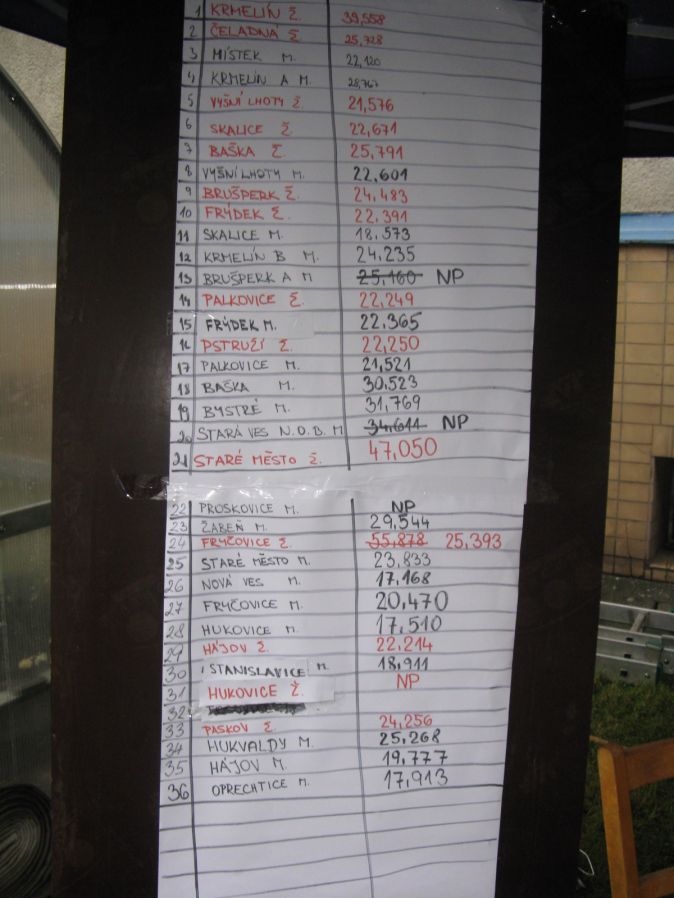 1 KRMELÍN Ž. 39,558
2 ČELADNÁ Ž 25,728
3 MÍSTEK M. 22,120
4 KRMELÍN A M. 28,767
5 VYŠNÍ LHOTY Ž 21,576
6 SKALICE Ž. 22,671
7 BAŠKA Ž. 25,791
8 VYŠNÍ LHOTY M. 22,601
9 BRUŠPERK Ž. 24,483
10 FRÝDEK Ž. 22,391
11 SKALICE M. 18,573
12 KRMELÍN B M. 24,235
13 BRUŠPERK A M 25,160 NP
14 PALKOVICE Ž. 22,249
15 FRÝDEK M. 22,365
16 PSTRUŽÍ Ž. 22,250
17 PALKOVICE M. 21,521
18 BAŠKA M. 30,523
19 BYSTRÉ M. 31,769
20 STARÁ VES N.O.B. M. 34,611 NP
21 STARÉ MĚSTO Ž. 47,050
22 PROSKOVICE M. NP
23 ŽABEŇ M. 29,544
24 FRYČOVICE Ž. 55,878 25,393
25 STARÉ MĚSTO M. 23,833
26 NOVÁ VES M. 17,168
27 FRYČOVICE M. 20,470
28 HUKOVICE M. 17,510
29 HÁJOV Ž. 22,214
30 STANISLAVICE M. 18,911
31 HUKOVICE Ž. NP
32
33 PASKOV Ž. 24,256
34 HUKVALDY M. 25,268
35 HÁJOV M. 19,777
36 OPRECHTICE M. 17,913